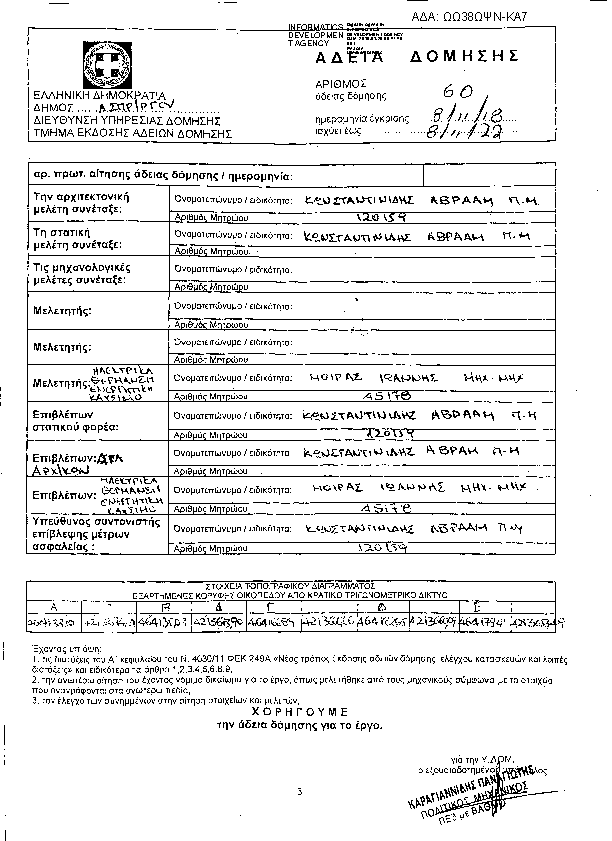 ΑΔΑ: ΩΩ38ΩΨΝ-ΚΑ7
INFORMATICS
DEVELOPMEN
T AGENCY
ΑΔΕΙΑ ΔΟΜΗΣΗΣ
ΕΛΛΗΝΙΚΗ ΔΗΜΟΚΡΑΤΙΑ
ΔΗΜΟΣ ..... ΑΣΠΡΟΠΥΡΓΟΥ
ΔΙΕΥΘΥΝΣΗ ΥΠΗΡΕΣΙΑΣ ΔΟΜΗΣΗΣ
ΤΜΗΜΑ ΕΚΔΟΣΗΣ ΑΔΕΙΩΝ ΔΟΜΗΣΗΣ
ΑΡΙΘΜΟΣ
άδειας δόμησης 60
ημερομηνία έγκρισης 8/11/18
ισχύει έως 8/11/22
αρ. πρωτ. αίτησης άδειας δόμησης / ημερομηνία:
Την αρχιτεκτονική μελέτη συνέταξε: Ονοματεπώνυμο / ειδικότητα: ΚΩΝΣΤΑΝΤΙΝΙΔΗΣ ΑΒΡΑΑΜ Π.Μ
Αριθμός Μητρώου 120159
Τη στατική μελέτη συνέταξε: Ονοματεπώνυμο / ειδικότητα: ΚΩΝΣΤΑΝΤΙΝΙΔΗΣ ΑΒΡΑΑΜ Π.Μ
Αριθμός Μητρώου
Τις μηχανολογικές μελέτες συνέταξε: Ονοματεπώνυμο / ειδικότητα:
Αριθμός Μητρώου
Μελετητής: Ονοματεπώνυμο / ειδικότητα:
Αριθμός Μητρώου
Μελετητής: Ονοματεπώνυμο / ειδικότητα:
Αριθμός Μητρώου
Μελετητής: ΗΛΕΚΤΡΙΚΑ ΘΕΡΜΑΝΣΗ ΕΝΕΡΓΗΤΙΚΗ ΚΑΥΣΙΜΟ Ονοματεπώνυμο / ειδικότητα: ΜΟΙΡΑΣ ΙΩΑΝΝΗΣ ΜΗΧ-ΜΗΧ
Αριθμός Μητρώου 45178
Επιβλέπων στατικού φορέα: Ονοματεπώνυμο / ειδικότητα: ΚΩΝΣΤΑΝΤΙΝΙΔΗΣ ΑΒΡΑΑΜ Π-Μ
Αριθμός Μητρώου 120159
Επιβλέπων: ΑΡΧ/ΚΩΝ Ονοματεπώνυμο / ειδικότητα ΚΩΝΣΤΑΝΤΙΝΙΔΗΣ ΑΒΡΑΑΜ Π-Μ
Αριθμός Μητρώου
Επιβλέπων: ΗΛΕΚΤΡΙΚΑ ΘΕΡΜΑΝΣΗ ΚΑΥΣΙΜΟ Ονοματεπώνυμο / ειδικότητα: ΜΟΙΡΑΣ ΙΩΑΝΝΗΣ ΜΗΧ-ΜΗΧ
Αριθμός Μητρώου 45178
Υπεύθυνος συντονιστής επίβλεψης μέτρων ασφαλείας : Ονοματεπώνυμο / ειδικότητα: ΚΩΝΣΤΑΝΤΙΝΙΔΗΣ ΑΒΡΑΑΜ Π.Μ
Αριθμός Μητρώου 120159
ΣΤΟΙΧΕΙΑ ΤΟΠΟΓΡΑΦΙΚΟΥ ΔΙΑΓΡΑΜΜΑΤΟΣ
ΕΞΑΡΤΗΜΕΝΕΣ ΚΟΡΥΦΗΣ ΟΙΚΟΠΕΔΟΥ ΑΠΟ ΚΡΑΤΙΚΟ ΤΡΙΓΩΝΟΜΕΤΡΙΚΟ ΔΙΚΤΥΟ
Έχοντας υπόψη:
1. τις διατάξεις του Α' κεφαλαίου του Ν. 4030/11 ΦΕΚ 249Α «Νέος τρόπος έκδοσης αδειών δόμησης, ελέγχου κατασκευών και λοιπές
διατάξεις» και ειδικότερα τα άρθρα 1,2,3,4,5,6,8,9,
2. την ανωτέρω αίτηση του έχοντος νόμιμο δικαίωμα για το έργο, όπως μελετήθηκε από τους μηχανικούς σύμφωνα με τα στοιχεία
που αναγράφονται στα ανωτέρω πεδία,
3. τον έλεγχο των συνημμένων στην αίτηση στοιχείων και μελετών,
ΧΟΡΗΓΟΥΜΕ
την άδεια δόμησης για το έργο.
για την Υ.ΔΟΜ.
ο εξουσιοδοτημένος υπάλληλος
ΚΑΡΑΓΙΑΝΝΙΔΗΣ ΠΑΝΑΓΙΩΤΗΣ
ΠΟΛΙΤΙΚΟΣ ΜΗΧΑΝΙΚΟΣ
ΠΕ3 με ΒΑΘΜΟ
3